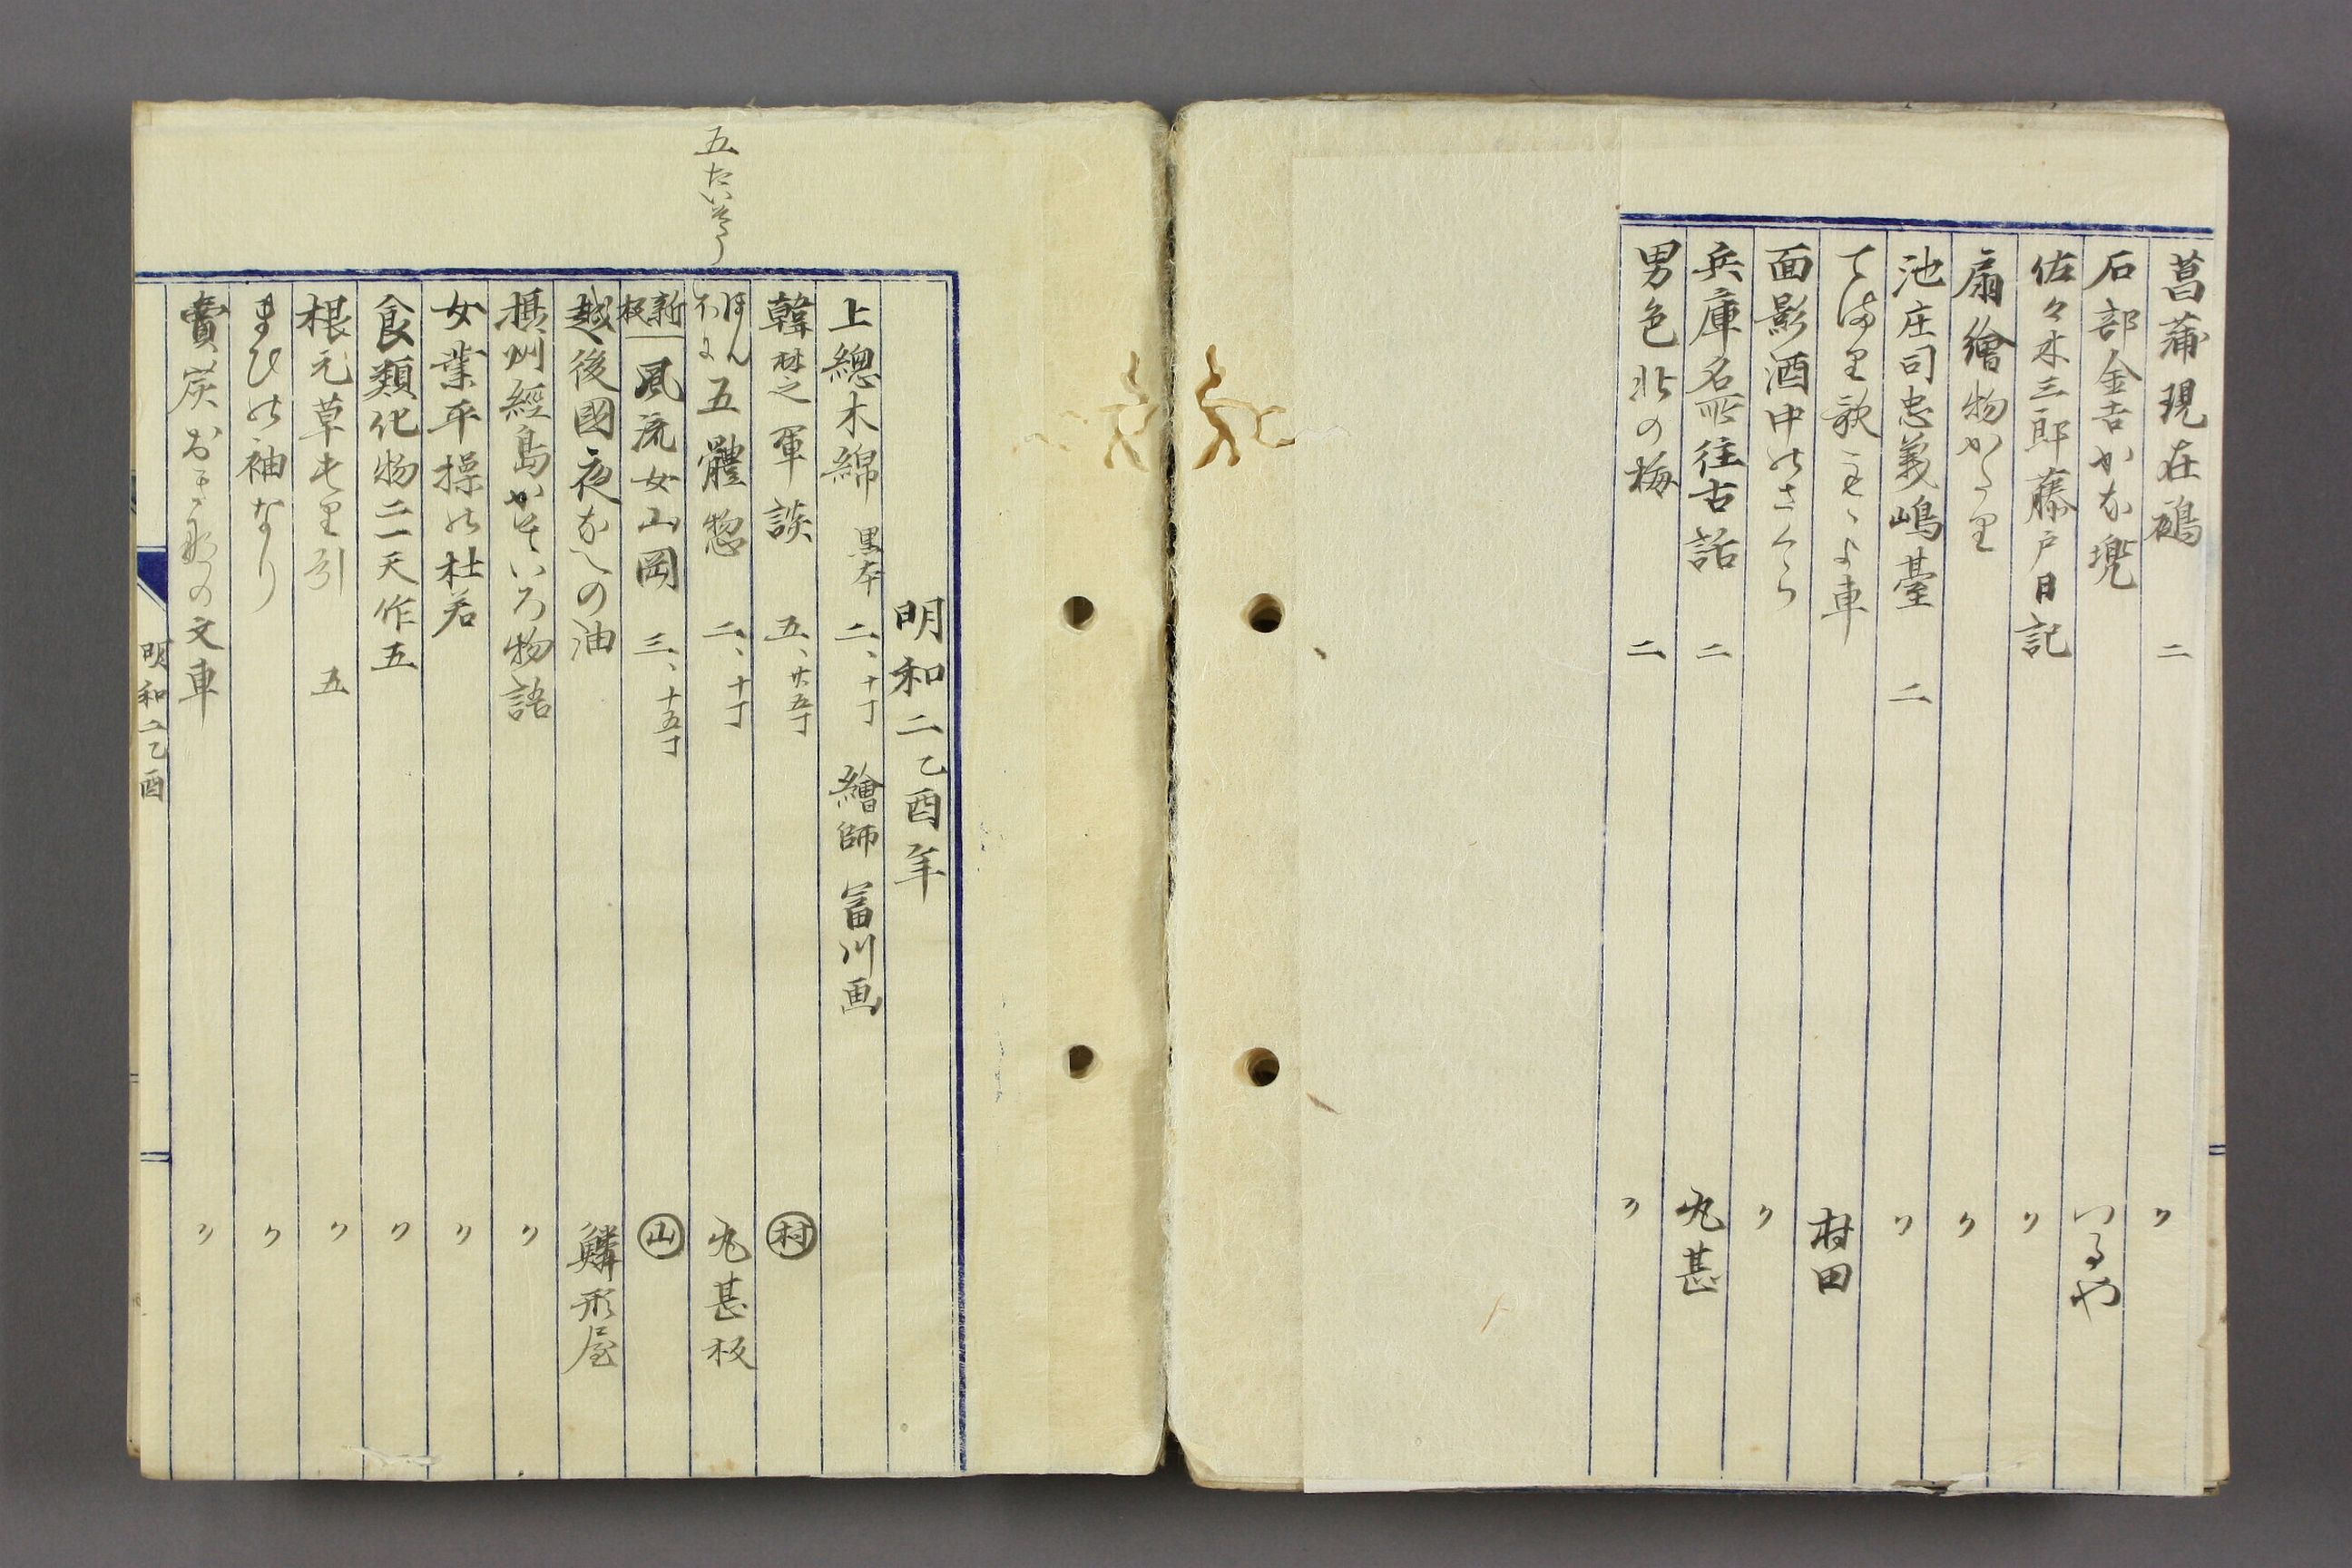 菖蒲現在鵺 二 〃
石部金吉かな兜 つるや
佐々木三郎藤戸日記 〃
扇繪物かたり 〃
池庄司忠義嶋臺 二 〃
てまり歌 車 村田
面影酒中のさくら 〃
兵庫名所往古話 二 丸甚
男色北の梅 二 〃
明和二乙酉年
上總木綿 黒本 二、十丁 繪師 冨川画
韓楚之軍談 五、廿五丁 村
五たいそう
ほんほに 五體惣 二、十丁 丸甚板
新板 風流女山岡 三、十五丁 山
越後國夜なへの油 鱗形屋
摂州經島かぞいろ物語 〃
女業平操の杜若 〃
食類化物二一天作五 〃
根元草もり引 五 〃
まひの袖なり 〃
賣炭おきなの文車 〃
明和二乙酉